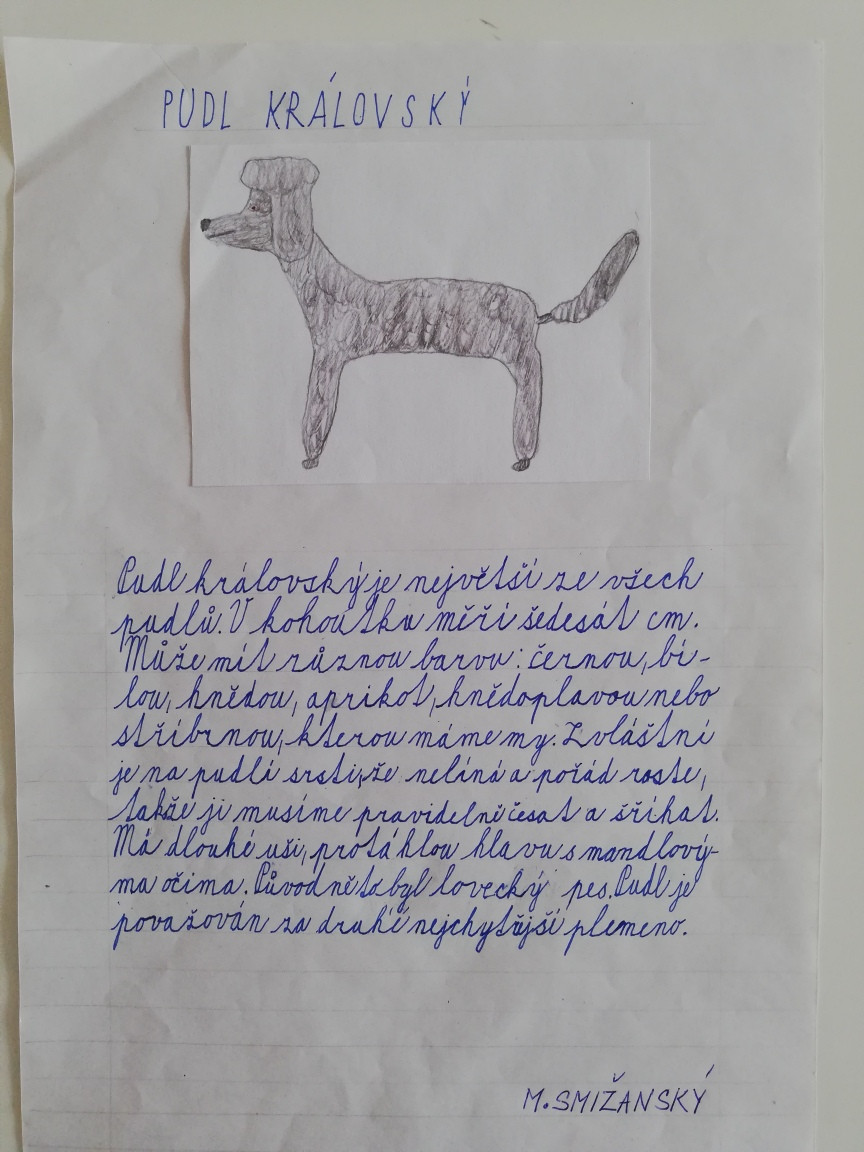 PUDL KRÁLOVSKÝ
Pudl královský je největší ze všech
pudlů. V kohoutku měří šedesát cm.
Může mít různou barvu: černou, bí-
lou, hnědou, aprikot, hnědoplavou nebo
stříbrnou, kterou máme my. Zvláštní
je na pudlí srsti, že nelíná a pořád roste,
takže ji musíme pravidelně česat a stříhat.
Má dlouhé uši, protáhlou hlavu s mandlový-
ma očima. Původně to byl lovecký pes. Pudl je
považován za druhé nejchytřejší plemeno.
M. SMIŽANSKÝ